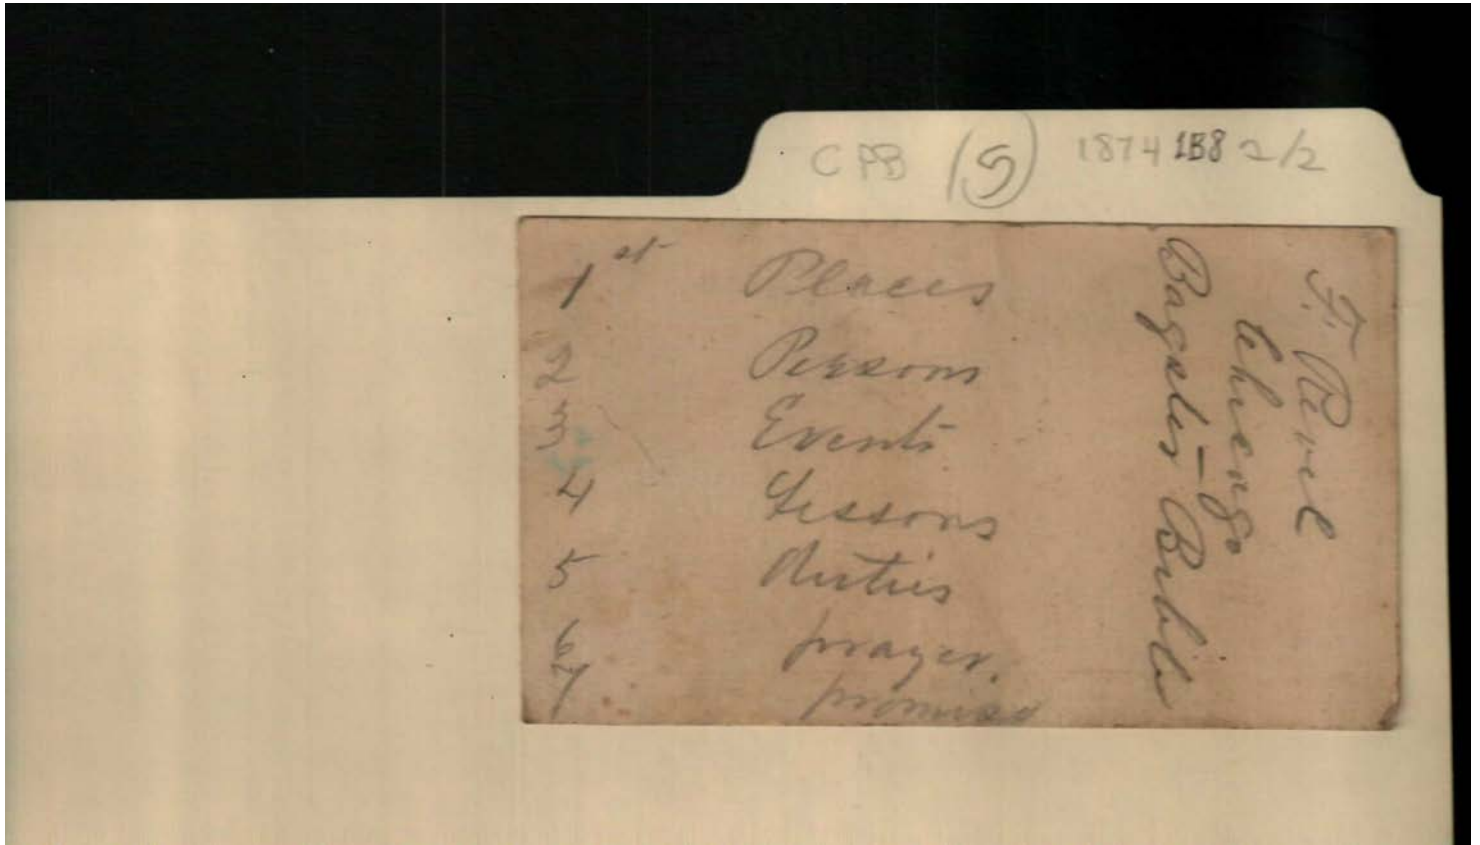 CPB (5) 1874 1B8 2/2
1st Places
2 Persons
3 Events
4 Lessons
5 duties
6 prayer.
7 promise
F. Revel
Chicago
Bagster Bible